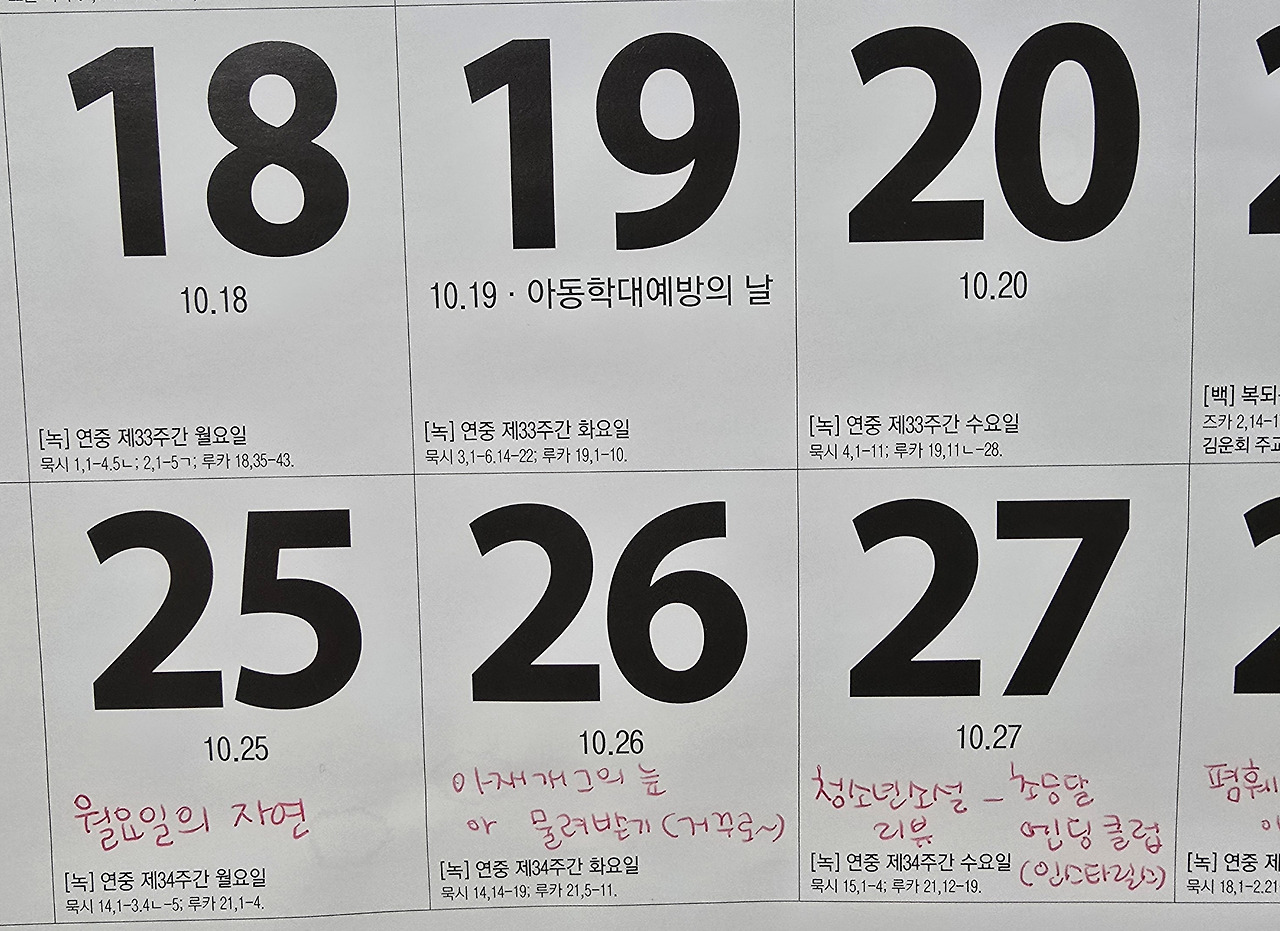 18
10.18
[녹] 연중 제33주간 월요일
묵시 1,1-4.5ㄴ; 2,1-5ㄱ; 루카 18,35-43.
19
10.19 · 아동학대예방의 날
[녹] 연중 제33주간 화요일
묵시 3,1-6.14-22; 루카 19,1-10.
20
10.20
[녹] 연중 제33주간 수요일
묵시 4,1-11; 루카 19,11ㄴ-28.
[백] 복되
즈카 2,14-1
김운회 주교
25
10.25
월요일의 자연
[녹] 연중 제34주간 월요일
묵시 14,1-3.4ㄴ-5; 루카 21,1-4.
26
10.26
아재개그의 늪
아 물려받기 (거꾸로~)
[녹] 연중 제34주간 화요일
묵시 14,14-19; 루카 21,5-11.
27
10.27
청소년소설 - 초승달
리뷰 엔딩클럽
(인스타릴스)
[녹] 연중 제34주간 수요일
묵시 15,1-4; 루카 21,12-19.
[녹] 연중 제
묵시 18,1-2.21